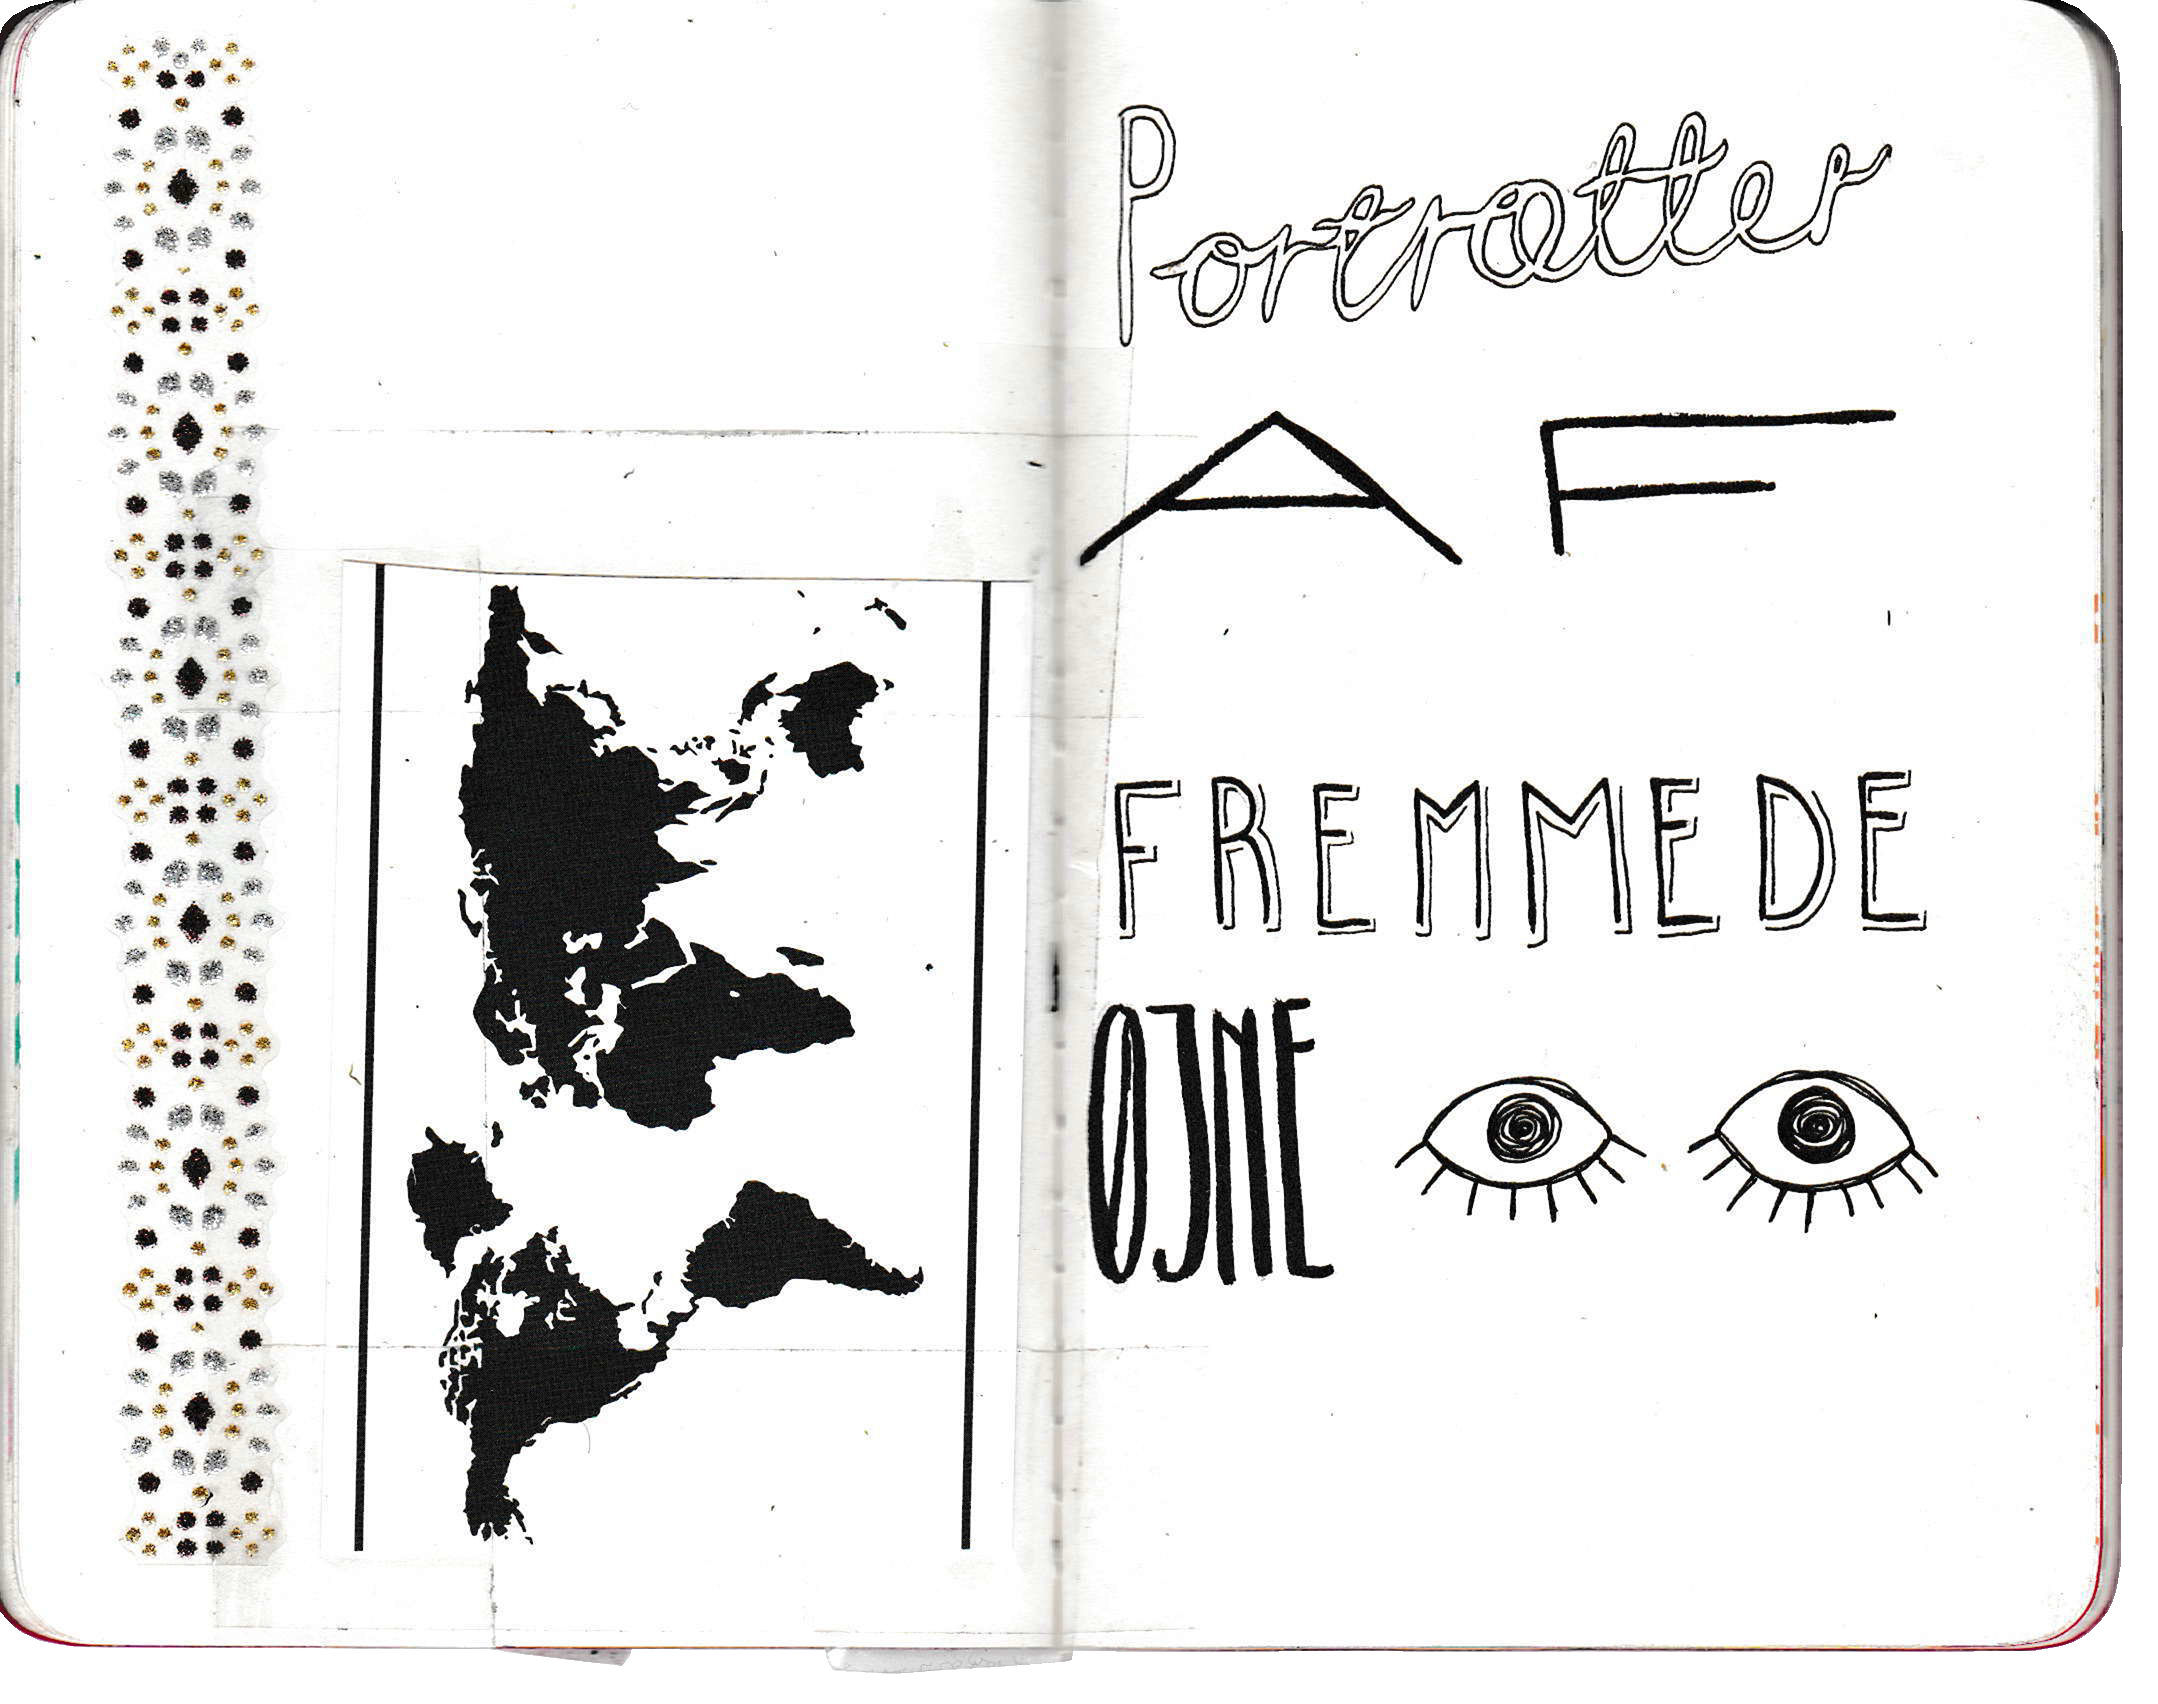 Portrætter
AF
FREMMEDE
ØJNE